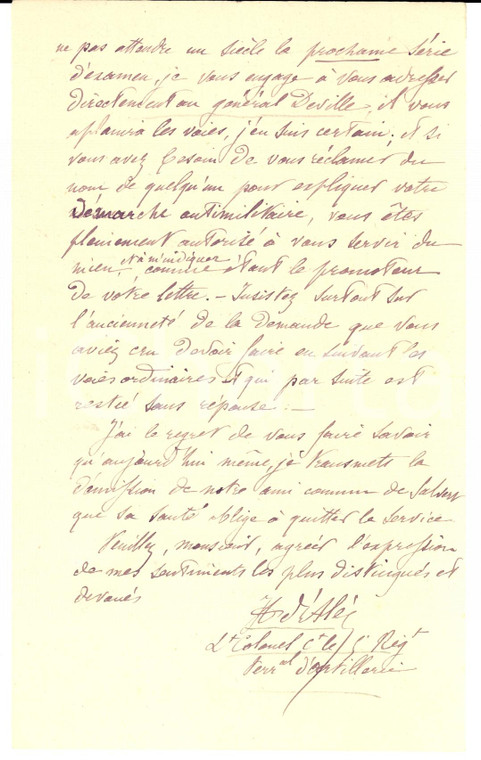 ne pas attendre un siècle la prochaine série
d'examen, je vous engage à vous adresser
directement au général Deville, il vous
aplanira les voies, j'en suis certain, et si
vous avez besoin de vous réclamer du
nom de quelqu'un pour expliquer votre
démarche antimilitaire, vous êtes
pleinement autorisé à vous servir du
mien et à m'indiquer comme étant le promoteur
de votre lettre. — Insistez surtout sur
l'ancienneté de la demande que vous
aviez cru devoir faire en suivant les
voies ordinaires et qui par suite est
restée sans réponse. —
J'ai le regret de vous faire savoir
qu'aujourd'hui même, je transmets la
démission de notre ami commun de
que sa santé oblige à quitter le service
Veuillez, monsieur, agréer l'expression
de mes sentiments les plus distingués et
dévoués
Lt Colonel Ct le Régt
Terral d'artillerie